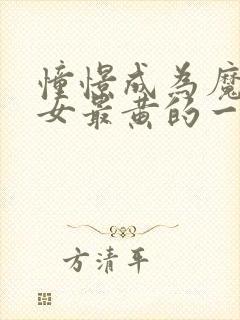 憧憬成为魔
女最黄的一
方清平